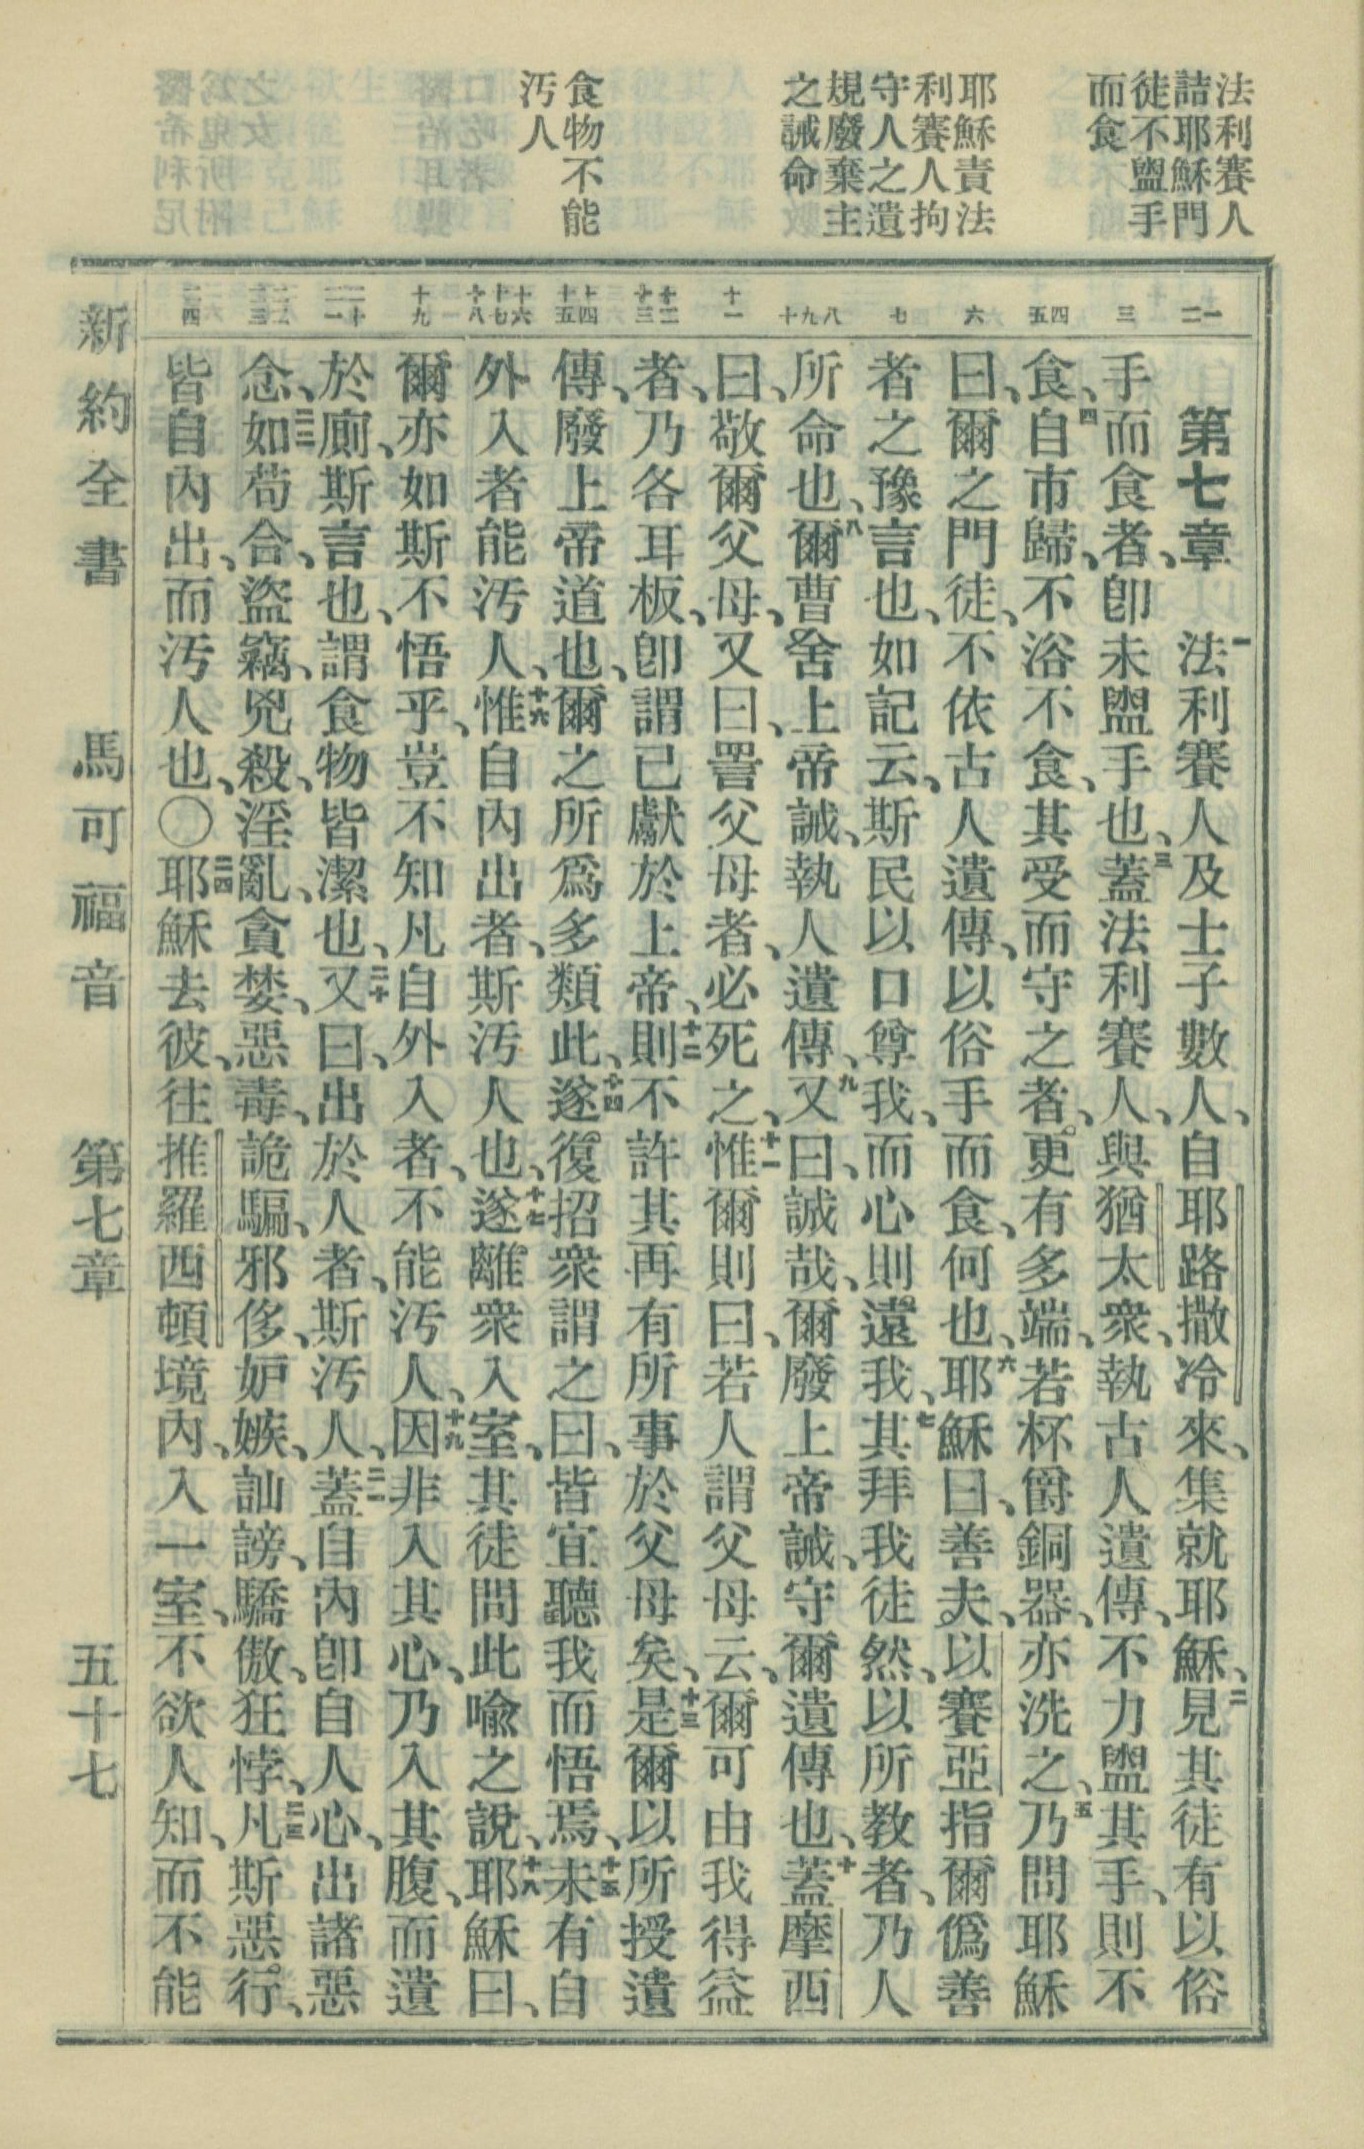 法利賽人
詰耶穌門
徒不盥手
而食
耶穌責法
利賽人拘
守人之遺
規廢棄主
之誡命
食物不能
汚人
一二
三
四五
六
七
八九十
十一
十二十三
十四十五
十六十七十八
十九
二十二一
二二二三
二四
第七章 一法利賽人及士子數人、自耶路撒冷來、集就耶穌、二見其徒有以俗
手而食者、卽未盥手也、三蓋法利賽人、與猶太衆、執古人遺傳、不力盥其手、則不
食、四自市歸、不浴不食、其受而守之者、更有多端、若杯爵銅器、亦洗之、五乃問耶穌
曰、爾之門徒、不依古人遺傳、以俗手而食、何也、六耶穌曰、善夫、以賽亞指爾僞善
者之豫言也、如記云、斯民以口尊我、而心則遠我、七其拜我徒然、以所教者、乃人
所命也、八爾曹舍上帝誡、執人遺傳、九又曰、誠哉、爾廢上帝誡、守爾遺傳也、十蓋摩西
曰、敬爾父母、又曰、詈父母者、必死之、十一惟爾則曰、若人謂父母云、爾可由我得益
者、乃各耳板、卽謂已獻於上帝、十二則不許其再有所事於父母矣、十三是爾以所授遺
傳、廢上帝道也、爾之所爲多類此、十四遂復招衆謂之曰、皆宜聽我而悟焉、十五未有自
外入者能汚人、十六惟自內出者、斯汚人也、十七遂離衆入室、其徒問此喩之說、十八耶穌曰、
爾亦如斯不悟乎、豈不知凡自外入者、不能汚人、十九因非入其心、乃入其腹、而遺
於廁、斯言也、謂食物皆潔也、二十又曰、出於人者、斯汚人、二一蓋自內卽自人心、出諸惡
念、二二如苟合、盜竊、兇殺、淫亂、貪婪、惡毒、詭騙、邪侈、妒嫉、訕謗、驕傲、狂悖、二三凡斯惡行、
皆自內出、而汚人也、〇二四耶穌去彼、往推羅西頓境內、入一室、不欲人知、而不能
新約全書 馬可福音 第七章 五十七